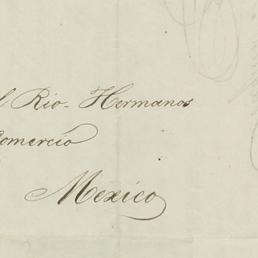 l Rio- Hermanos
Comercio
Mexico